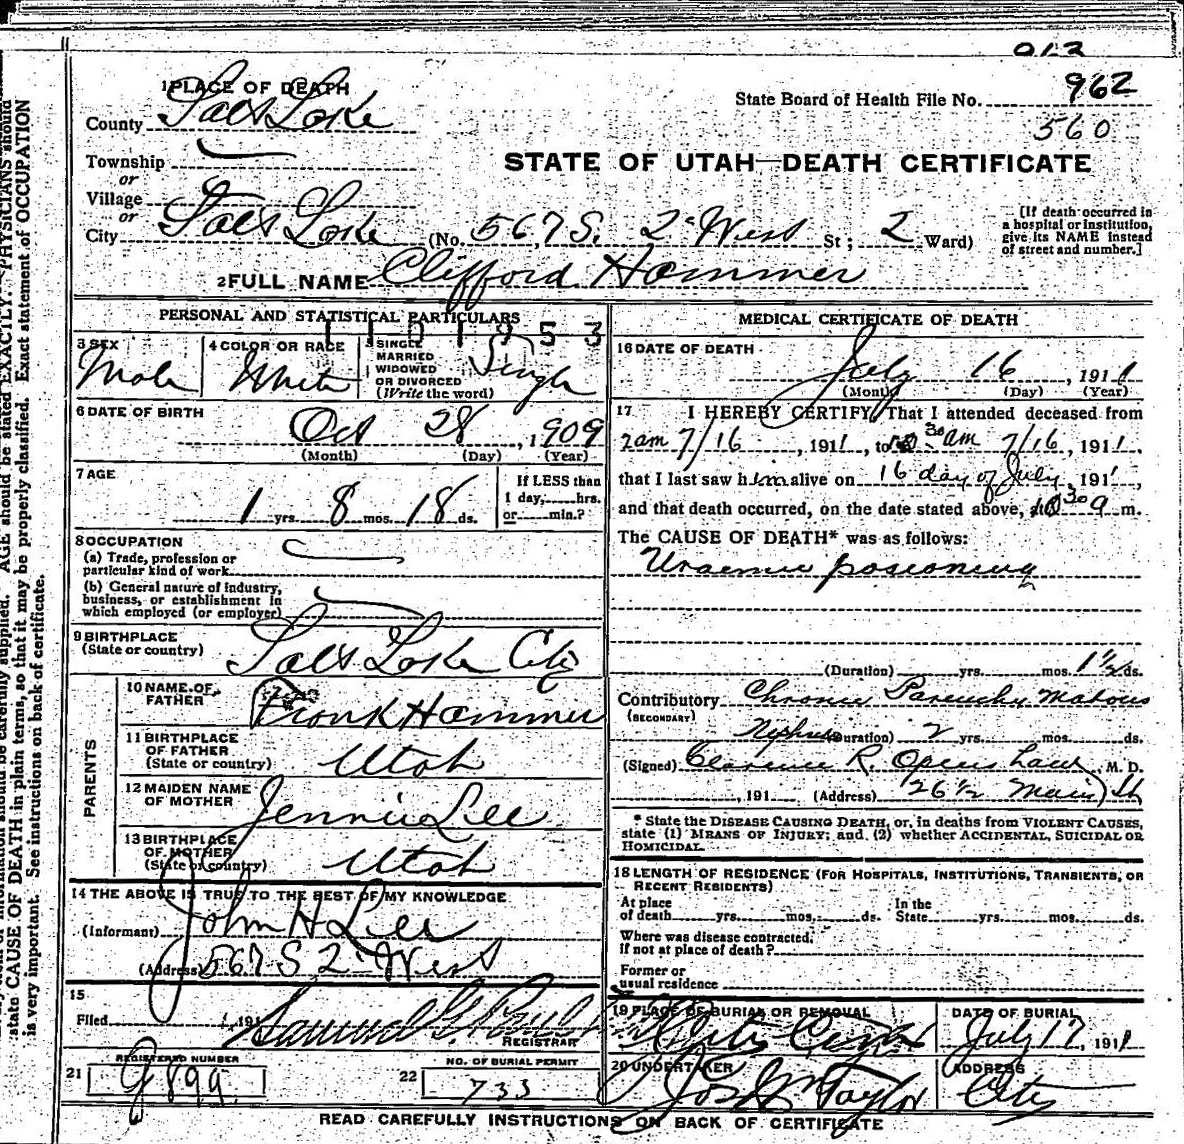 962
State Board of Health File No. 962
560
1 PLACE OF DEATH
County Salt Lake
Township
or
Village
or
City Salt Lake (No. 567 S. 2 West St; 2 Ward)
STATE OF UTAH—DEATH CERTIFICATE
[If death occurred in
a hospital or institution,
give its NAME instead
of street and number.]
2 FULL NAME Clifford Hammer
PERSONAL AND STATISTICAL PARTICULARS
1101953
3 SEX
Male
4 COLOR OR RACE
White
5 SINGLE
MARRIED
WIDOWED
OR DIVORCED
(Write the word)
Single
6 DATE OF BIRTH
Oct 28, 1909
(Month) (Day) (Year)
7 AGE
1 yrs. 8 mos. 18 ds.
If LESS than
1 day,......hrs.
or......min.?
8 OCCUPATION
(a) Trade, profession or
particular kind of work
(b) General nature of industry,
business, or establishment in
which employed (or employer)
9 BIRTHPLACE
(State or country)
Salt Lake City
PARENTS
10 NAME OF
FATHER
Frank Hammer
11 BIRTHPLACE
OF FATHER
(State or country)
Utah
12 MAIDEN NAME
OF MOTHER
Jennie Lee
13 BIRTHPLACE
OF MOTHER
(State or country)
Utah
14 THE ABOVE IS TRUE TO THE BEST OF MY KNOWLEDGE
(Informant) John H Lee
(Address) 567 S 2 West
15
Filed , 191
Samuel G. Paul
REGISTRAR
21
REGISTERED NUMBER
9899
22
NO. OF BURIAL PERMIT
733
MEDICAL CERTIFICATE OF DEATH
16 DATE OF DEATH
July 16, 1911
(Month) (Day) (Year)
17 I HEREBY CERTIFY, That I attended deceased from
2am 7/16, 1911, to 10:30 am 7/16, 1911,
that I last saw him alive on 16 day of July, 1911,
and that death occurred, on the date stated above, 10 30 a m.
The CAUSE OF DEATH* was as follows:
Uraemic posioning
(Duration) yrs. mos. 1 1/2 ds.
Contributory Chronic Parenchymatous
(SECONDARY)
Nephritis (Duration) 2 yrs. mos. ds.
(Signed) Clarence R. Openshaw, M. D.
, 191 (Address) 126 1/2 Main St
* State the DISEASE CAUSING DEATH, or, in deaths from VIOLENT CAUSES,
state (1) MEANS OF INJURY; and, (2) whether ACCIDENTAL, SUICIDAL OR
HOMICIDAL.
18 LENGTH OF RESIDENCE (FOR HOSPITALS, INSTITUTIONS, TRANSIENTS, OR
RECENT RESIDENTS)
At place
of death yrs. mos. ds.
In the
State yrs. mos. ds.
Where was disease contracted,
if not at place of death?
Former or
usual residence
19 PLACE OF BURIAL OR REMOVAL
City Cem
DATE OF BURIAL
July 17, 1911
20 UNDERTAKER
Jos Wm Taylor
ADDRESS
City
READ CAREFULLY INSTRUCTIONS ON BACK OF CERTIFICATE
AGE should be stated EXACTLY. PHYSICIANS should
state CAUSE OF DEATH in plain terms, so that it may be properly classified. Exact statement of OCCUPATION
is very important. See instructions on back of certificate.